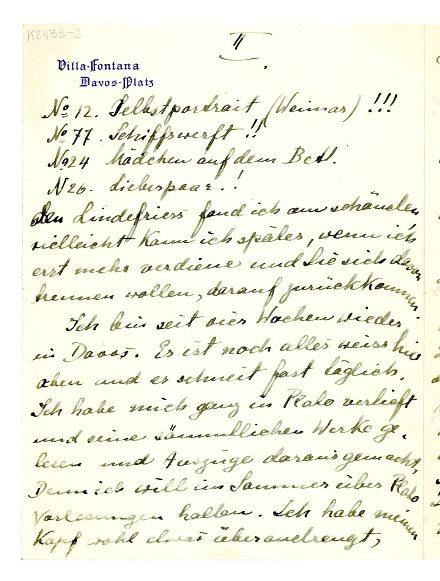 K2433-2
II.
Villa-Fontana
Davos-Platz
No 12. Selbstportrait (Weimar) !!!
No 77. Schiffswerft !!
No 24 Mädchen auf dem Bett.
N 20. Liebespaar.!
Den Lindefries fand ich am schönsten
vielleicht kann ich später, wenn ich
erst mehr verdiene und Sie sich davon
trennen wollen, darauf zurückkommen.
Ich bin seit vier Wochen wieder
in Davos. Es ist noch alles weiss hier
oben und es schneit fast täglich.
Ich habe mich ganz in Plato verlieft
und seine sämmtlichen Werke ge-
lesen und Auszüge daraus gemacht,
Denn ich will im Sommer über Plato
Vorlesungen halten. Ich habe meinen
Kopf wohl etwas überanstrengt,